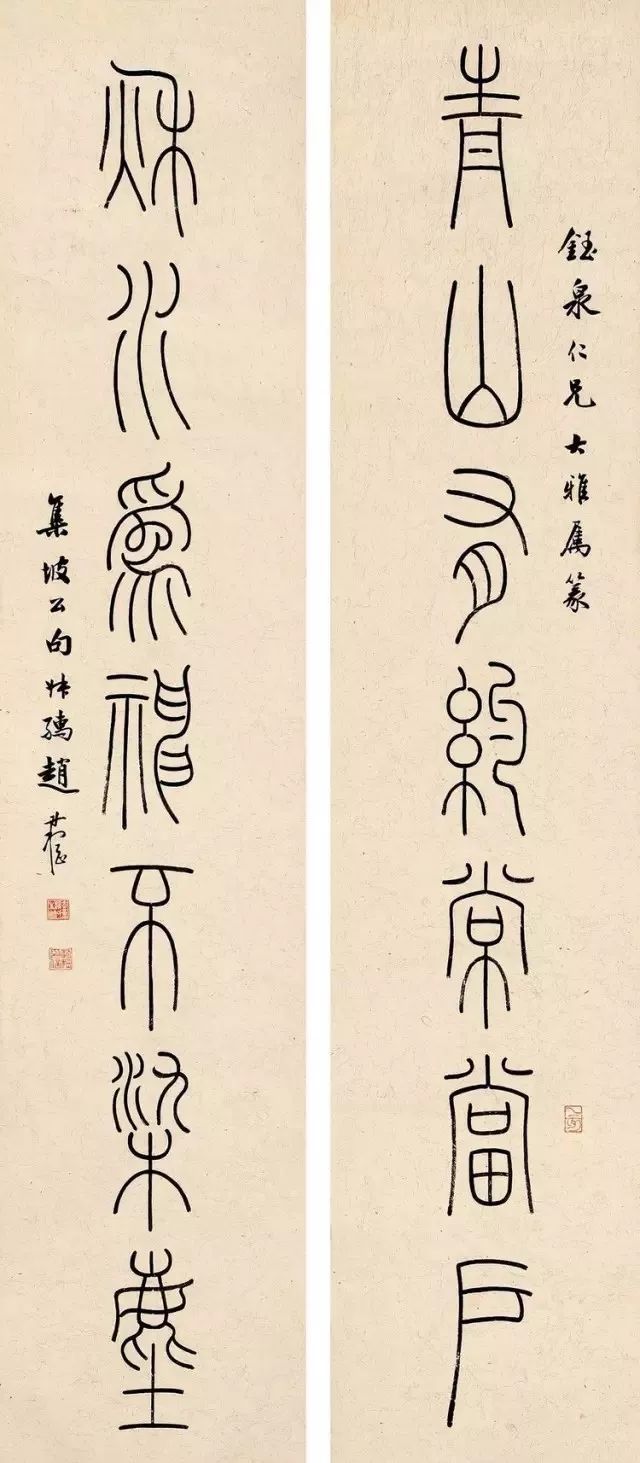 鈺泉仁兄大雅屬篆
青山有約常當戶
秋水為神不染塵
集坡公句叔孺趙時棡